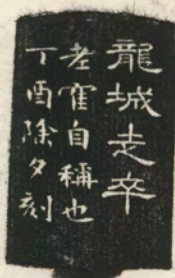 龍城走卒
老萑自稱也
丁酉除夕刻